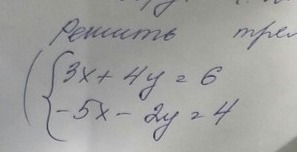 Решить
3x + 4y = 6
-5x - 2y = 4